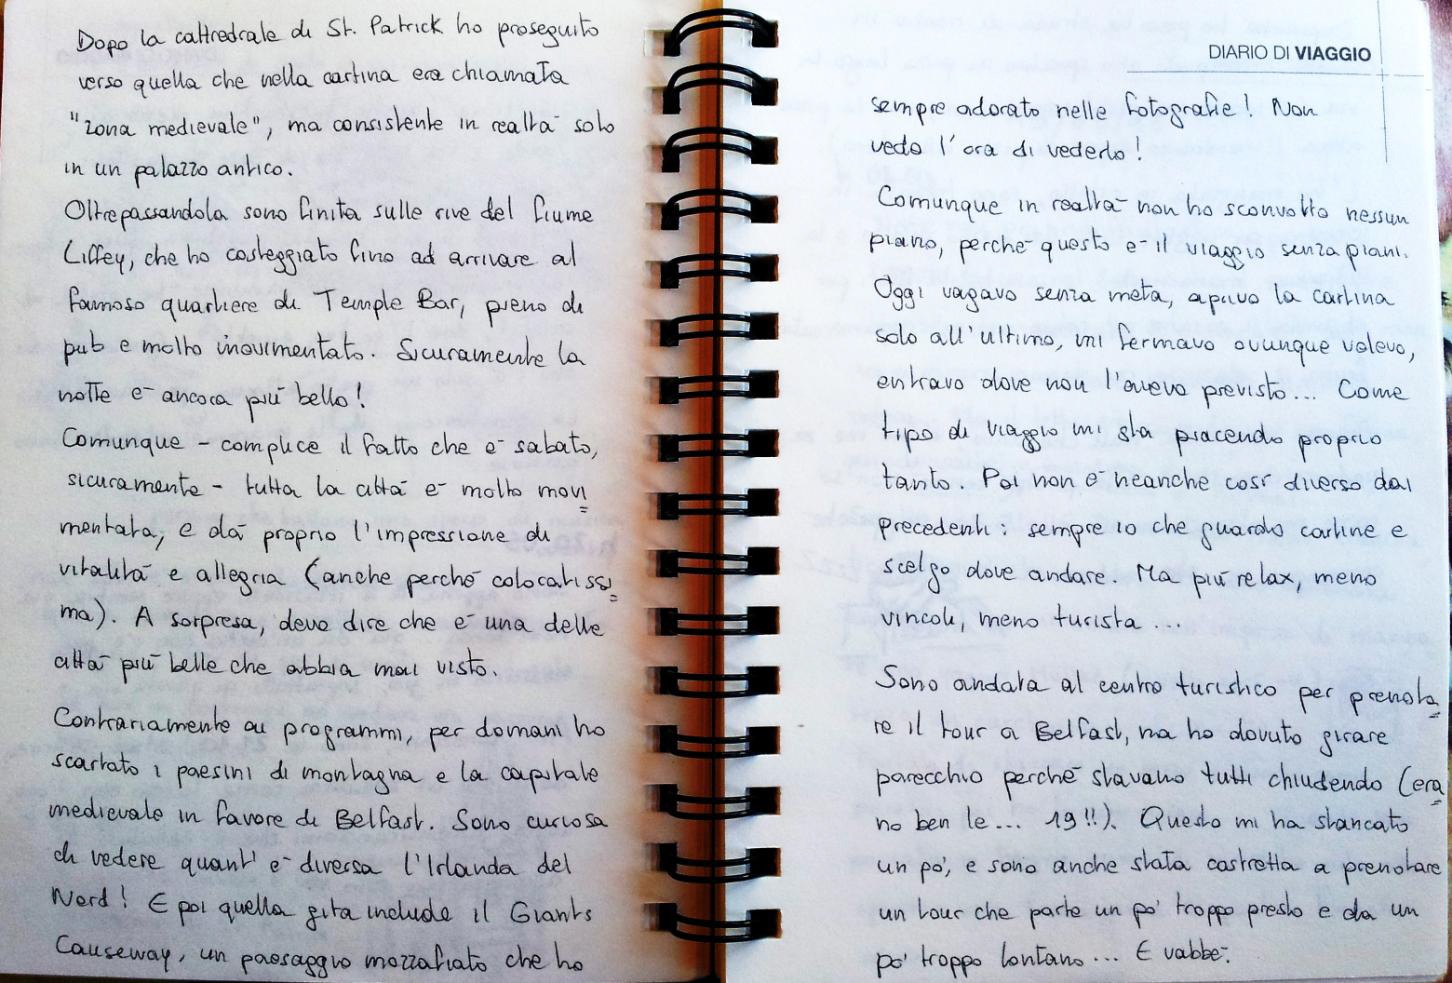 Dopo la cattedrale di St. Patrick ho proseguito
verso quella che nella cartina era chiamata
"zona medievale", ma consistente in realtà solo
in un palazzo antico.
Oltrepassandola sono finita sulle rive del fiume
Liffey, che ho costeggiato fino ad arrivare al
famoso quartiere di Temple Bar, pieno di
pub e molto movimentato. Sicuramente la
notte è ancora più bello!
Comunque - complice il fatto che è sabato,
sicuramente - tutta la città è molto movi
mentata, e dà proprio l'impressione di
vitalità e allegria (anche perché coloratissi
ma). A sorpresa, devo dire che è una delle
città più belle che abbia mai visto.
Contrariamente ai programmi, per domani ho
scartato i paesini di montagna e la capitale
medievale in favore di Belfast. Sono curiosa
di vedere quant'è diversa l'Irlanda del
Nord! E poi quella gita include il Giants
Causeway, un paesaggio mozzafiato che ho
DIARIO DI VIAGGIO
sempre adorato nelle fotografie! Non
vedo l'ora di vederlo!
Comunque in realtà non ho sconvolto nessun
piano, perché questo è il viaggio senza piani.
Oggi vagavo senza meta, aprivo la cartina
solo all'ultimo, mi fermavo ovunque volevo,
entravo dove non l'avevo previsto... Come
tipo di viaggio mi sta piacendo proprio
tanto. Poi non è neanche così diverso dai
precedenti: sempre io che guardo cartine e
scelgo dove andare. Ma più relax, meno
vincoli, meno turista...
Sono andata al centro turistico per prenota
re il tour a Belfast, ma ho dovuto girare
parecchio perché stavano tutti chiudendo (era
no ben le... 19!!). Questo mi ha stancato
un po', e sono anche stata costretta a prenotare
un tour che parte un po' troppo presto e da un
po' troppo lontano... E vabbè.